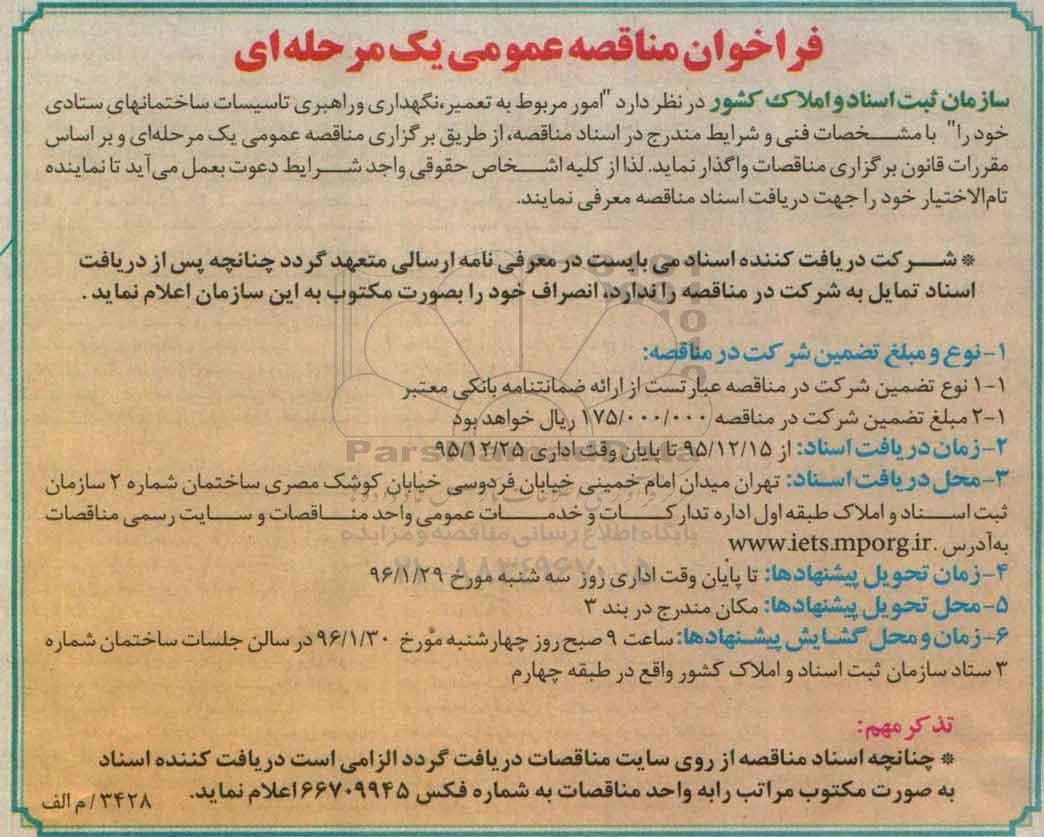 فراخوان مناقصه عمومی یک مرحله‌ای
سازمان ثبت اسناد و املاک کشور در نظر دارد "امور مربوط به تعمیر،نگهداری وراهبری تاسیسات ساختمانهای ستادی
خود را" با مشخصات فنی و شرایط مندرج در اسناد مناقصه، از طریق برگزاری مناقصه عمومی یک مرحله‌ای و بر اساس
مقررات قانون برگزاری مناقصات واگذار نماید. لذا از کلیه اشخاص حقوقی واجد شرایط دعوت بعمل می‌آید تا نماینده
تام‌الاختیار خود را جهت دریافت اسناد مناقصه معرفی نمایند.
* شرکت دریافت کننده اسناد می بایست در معرفی نامه ارسالی متعهد گردد چنانچه پس از دریافت
اسناد تمایل به شرکت در مناقصه را ندارد، انصراف خود را بصورت مکتوب به این سازمان اعلام نماید .
۱-نوع و مبلغ تضمین شرکت در مناقصه:
۱-۱ نوع تضمین شرکت در مناقصه عبارتست از ارائه ضمانتنامه بانکی معتبر
۲-۱ مبلغ تضمین شرکت در مناقصه ۱۷۵/۰۰۰/۰۰۰ ریال خواهد بود
۲-زمان دریافت اسناد: از ۹۵/۱۲/۱۵ تا پایان وقت اداری ۹۵/۱۲/۲۵
۳-محل دریافت اسناد: تهران میدان امام خمینی خیابان فردوسی خیابان کوشک مصری ساختمان شماره ۲ سازمان
ثبت اسناد و املاک طبقه اول اداره تدارکات و خدمات عمومی واحد مناقصات و سایت رسمی مناقصات
به‌آدرس .www.iets.mporg.ir
۴-زمان تحویل پیشنهادها: تا پایان وقت اداری روز سه شنبه مورخ ۹۶/۱/۲۹
۵-محل تحویل پیشنهادها: مکان مندرج در بند ۳
۶-زمان و محل گشایش پیشنهادها: ساعت ۹ صبح روز چهارشنبه مورخ ۹۶/۱/۳۰ در سالن جلسات ساختمان شماره
۳ ستاد سازمان ثبت اسناد و املاک کشور واقع در طبقه چهارم
تذکر مهم:
* چنانچه اسناد مناقصه از روی سایت مناقصات دریافت گردد الزامی است دریافت کننده اسناد
به صورت مکتوب مراتب رابه واحد مناقصات به شماره فکس ۶۶۷۰۹۹۴۵ اعلام نماید.
۳۴۲۸/م الف
ParsNamadData
پایگاه اطلاع رسانی مناقصه و مزایده